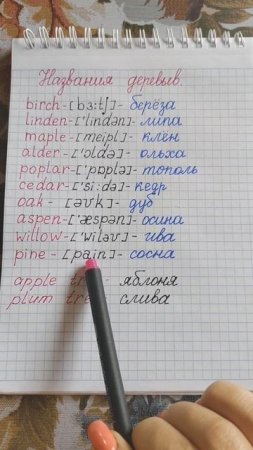 Названия деревьев.
birch-[bɜ:tʃ]- берёза
linden-['lindən]- липа
maple-[meipl]- клён
alder-['ɔldə]- ольха
poplar-['pɒplə]- тополь
cedar-['si:də]- кедр
oak - [əʊk]- дуб
aspen-['æspən]- осина
willow-['wiləʊ]- ива
pine - [pain]- сосна
apple яблоня
plum слива